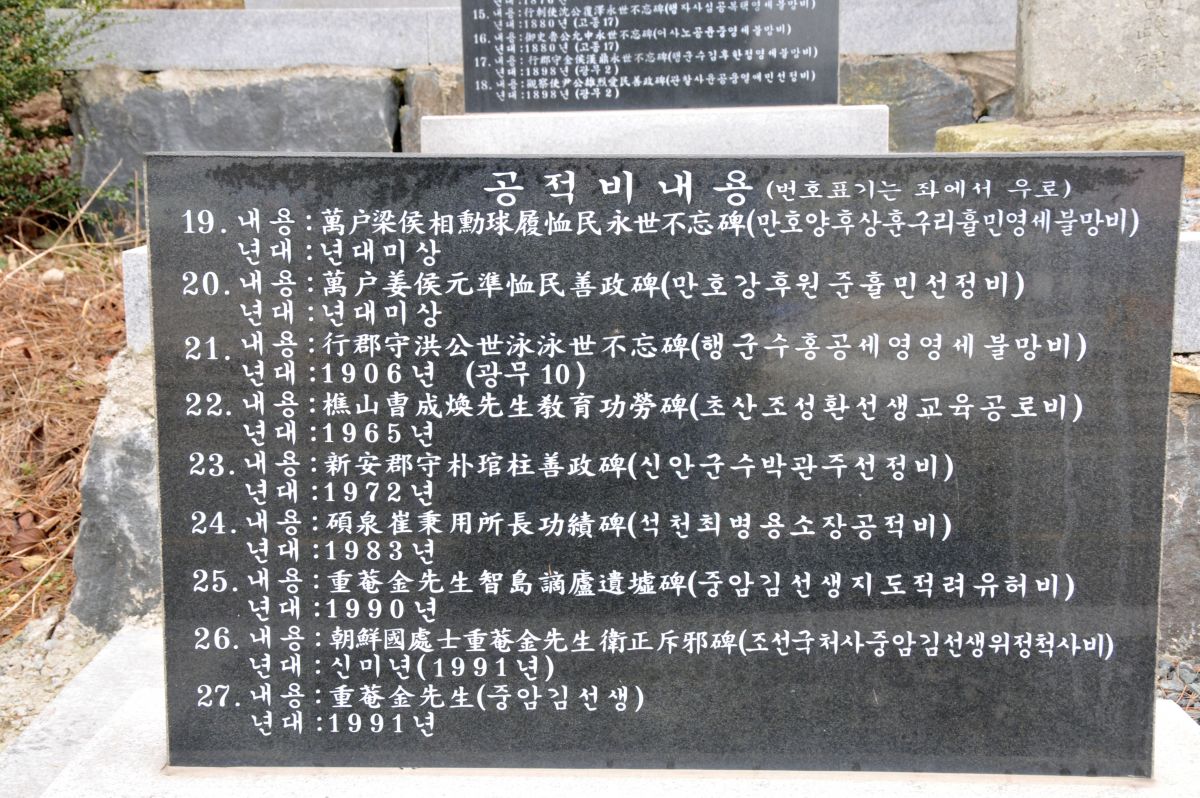 15. 내용:行刺使沈公復澤永世不忘碑(행자사심공복택영세불망비)
년대:1880년 (고종17)
16. 내용:御史魯公允中永世不忘碑(어사노공윤중영세불망비)
년대:1880년 (고종17)
17. 내용:行郡守金侯漢鼎永世不忘碑(행군수김후한정영세불망비)
년대:1898년 (광무2)
18. 내용:觀察使尹公雄烈愛民善政碑(관찰사윤공웅열애민선정비)
년대:1898년 (광무2)
공적비내용(번호표기는 좌에서 우로)
19. 내용:萬户梁侯相勳球履恤民永世不忘碑(만호양후상훈구리휼민영세불망비)
년대:년대미상
20. 내용:萬户姜侯元準恤民善政碑(만호강후원준휼민선정비)
년대:년대미상
21. 내용:行郡守洪公世泳泳世不忘碑(행군수홍공세영영세불망비)
년대:1906년 (광무10)
22. 내용:樵山曺成煥先生敎育功勞碑(초산조성환선생교육공로비)
년대:1965년
23. 내용:新安郡守朴琯柱善政碑(신안군수박관주선정비)
년대:1972년
24. 내용:碩泉崔秉用所長功績碑(석천최병용소장공적비)
년대:1983년
25. 내용:重菴金先生智島謫廬遺墟碑(중암김선생지도적려유허비)
년대:1990년
26. 내용:朝鮮國處士重菴金先生衛正斥邪碑(조선국처사중암김선생위정척사비)
년대:신미년(1991년)
27. 내용:重菴金先生(중암김선생)
년대:1991년